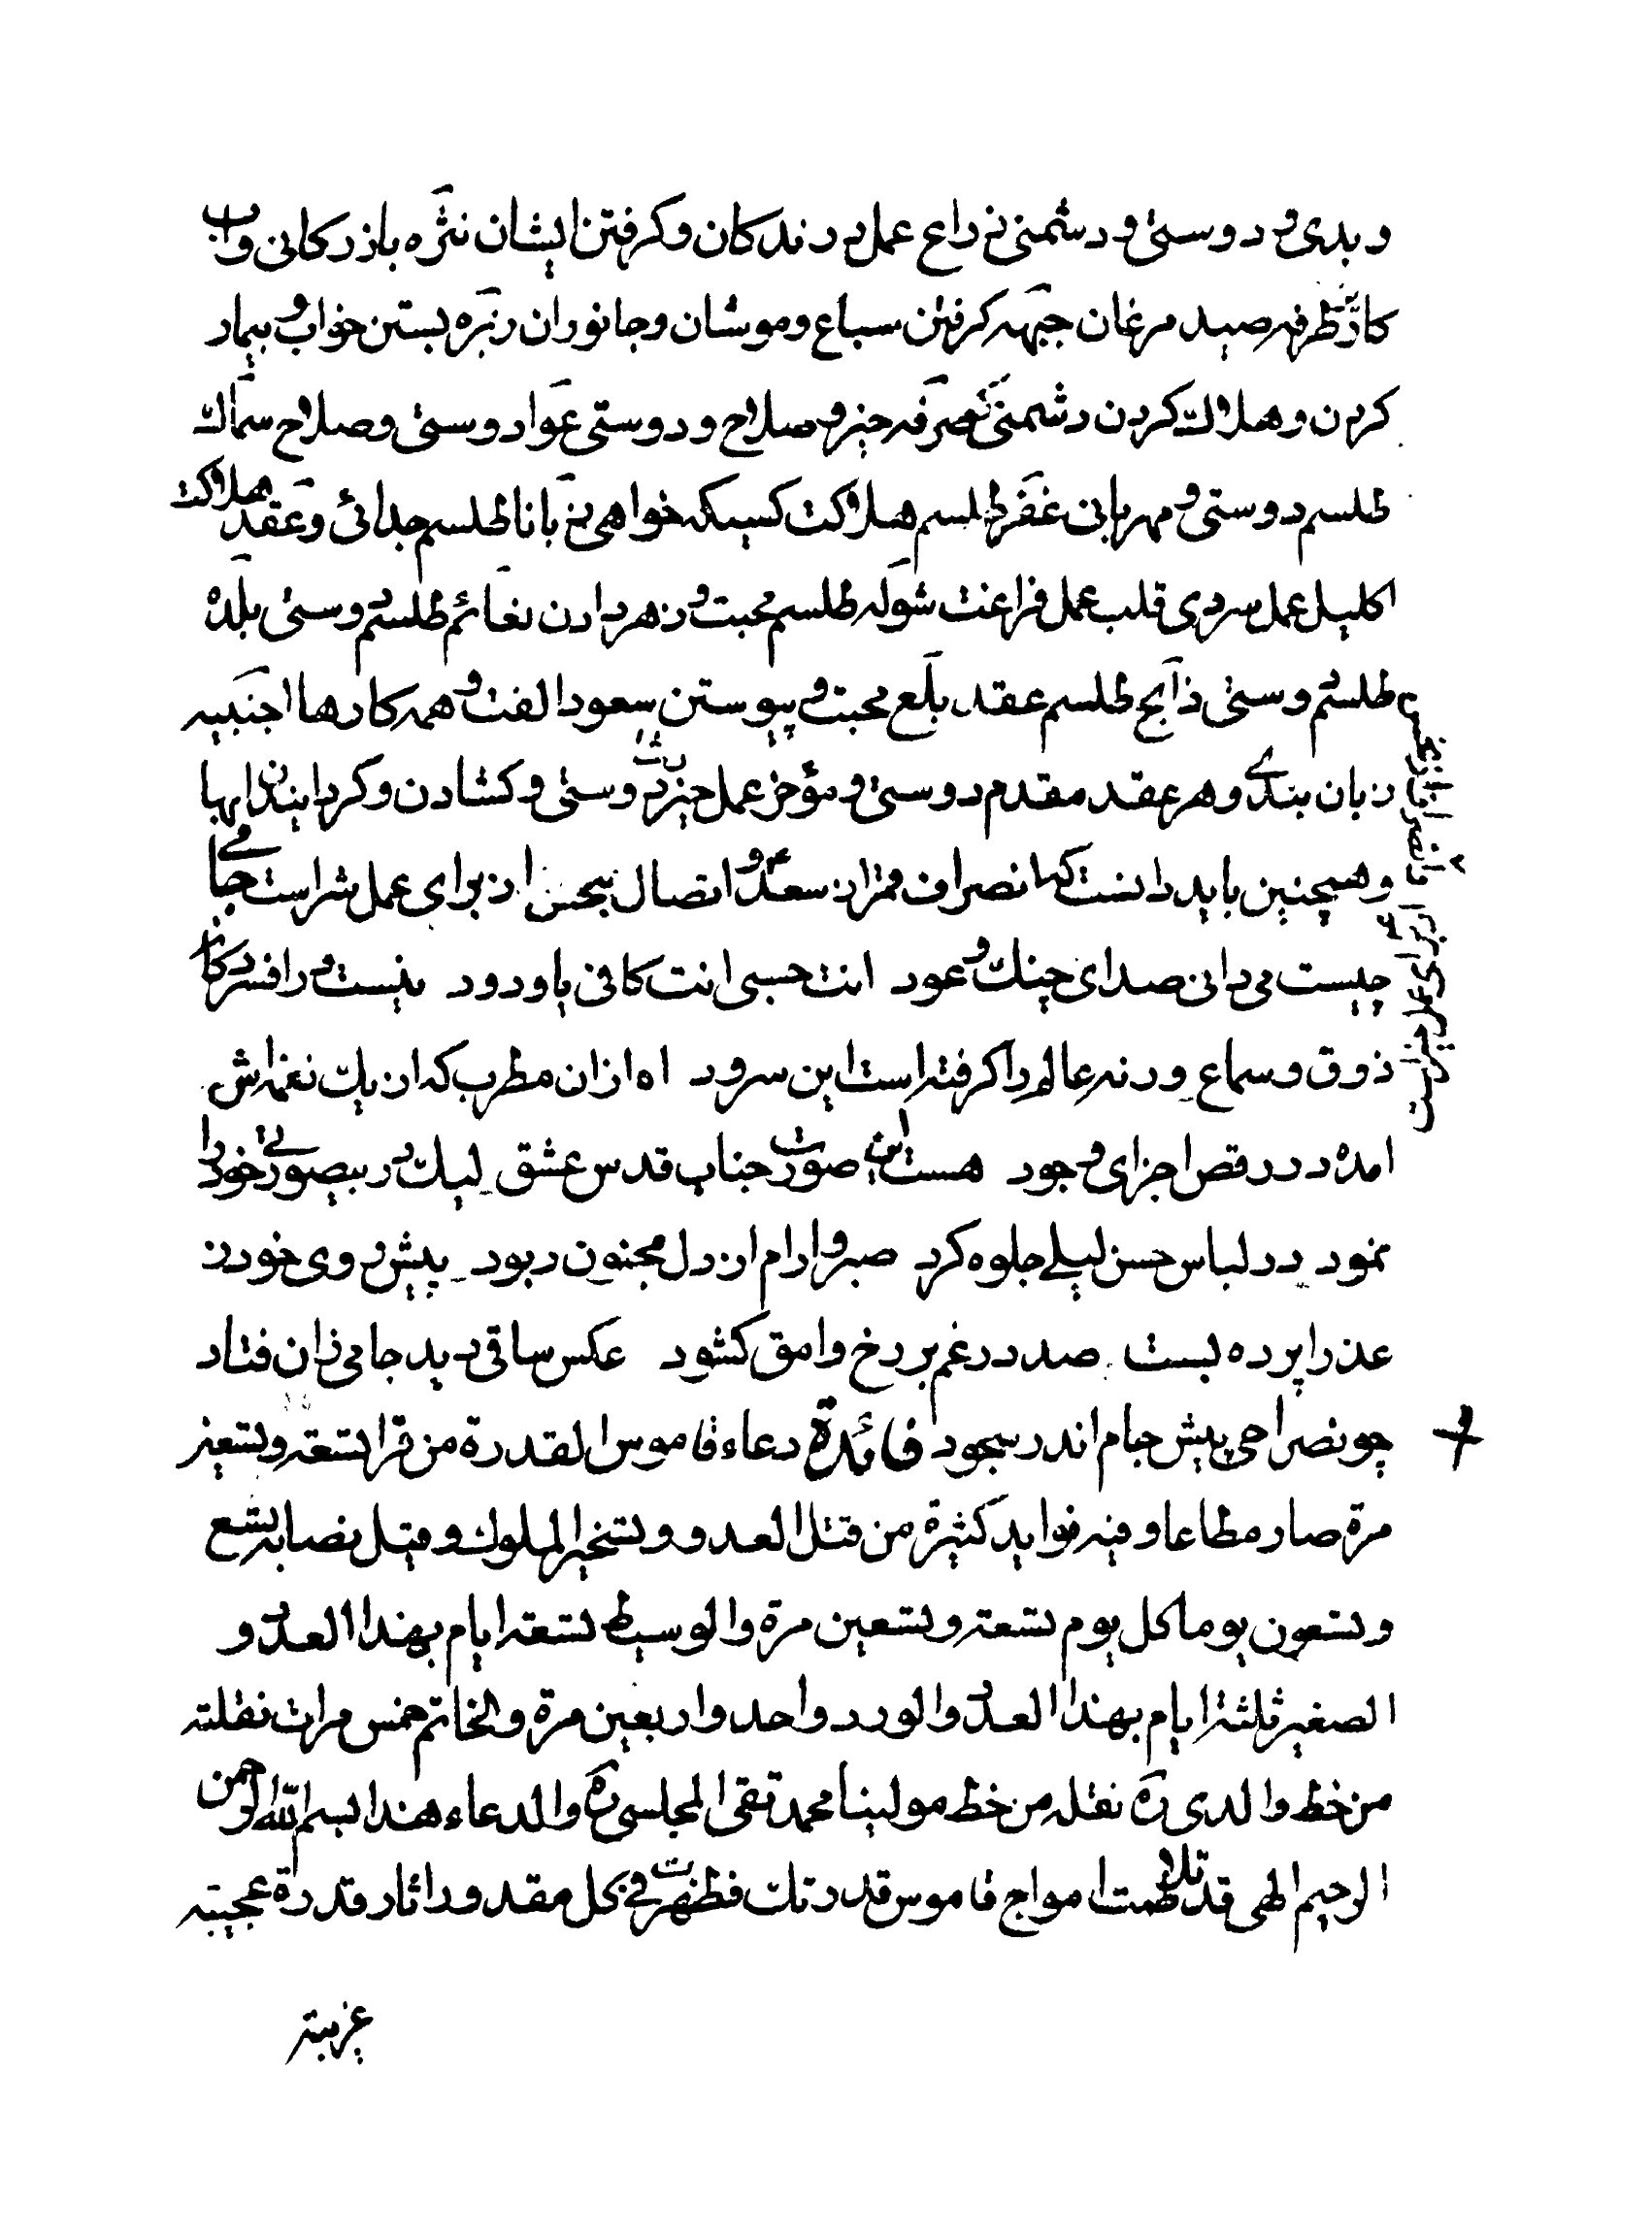 و بدی و دوستی و دشمنی ذراع عمل درندکان و کرفتن ایشان نثره بازرکانی و اب
کار طرفه صید مرغان جبهه کرفتن سباع و موشان و جانوران زبره بستن خواب و بیمار
کردن و هلاک کردن دشمنی صرفه خیر و صلاح و دوستی عوا دوستی و صلاح سماک
طلسم دوستی و مهربانی غفر طلسم هلاکت کسیکه خواهی زبانا طلسم جدائی و عقد هلاکت
اکلیل عمل سردی قلب عمل فراغت شوله طلسم محبت و زهر دادن نعائم طلسم دوستی بلده
طلسم دوستی ذابح طلسم عقد بلع محبت و پیوستن سعود الفت و همه کارها اخبیه
زبان بندی و هر عقد مقدم دوستی و مؤخر عمل خیر دوستی و کشادن و کردانیدن ابها
و همچنین باید دانست که انصراف قمر از سعد و اتصال بنحس از برای عمل شر است
چیست می دانی صدای چنک و عود انت حسبی انت کافی یا ودود نیست در افسردکان
ذوق و سماع ورنه عالم را کرفته است این سرود اه ازان مطرب که از یک نغمه اش
امده در رقص اجزای وجود هست این صورت جناب قدس عشق لیک در بیصورتی خود را
نمود در لباس حسن لیلی جلوه کرد صبر و ارام از دل مجنون ربود پیش روی خود ز
عذرا پرده بست صد در غم بر رخ وامق کشود عکس ساقی دید جامی زان فتاد
چو نصراحی پیش جام اندر سجود فائدة دعاء قاموس القدرة من قرا تسعة و تسعین
مرة صار مطاعا و فیه فواید کثیرة من قتل العدو و تسخیر الملوک و قیل نصابه تسع
و تسعون یوما کل یوم تسعة و تسعین مرة والوسیط تسعة ایام بهذا العدد و
الصغیر ثلثة ایام بهذا العدد والورد واحد واربعین مرة والخاتم خمس مرات نقلته
من خط والدی ره نقله من خط مولینا محمد تقی المجلسی ره والدعاء هذا بسم الله الرحمن
الرحیم الهی قد تلاطمت امواج قاموس قدرتک فظهرت فی کل مقدور اثار قدرة عجیبة
غریبة